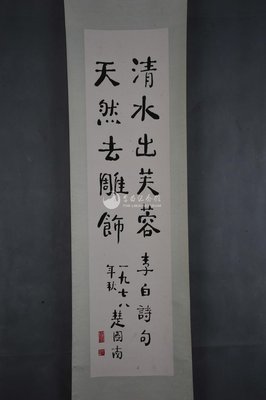 清水出芙蓉
天然去雕飾
李白詩句
一九七八
年秋
楚图南